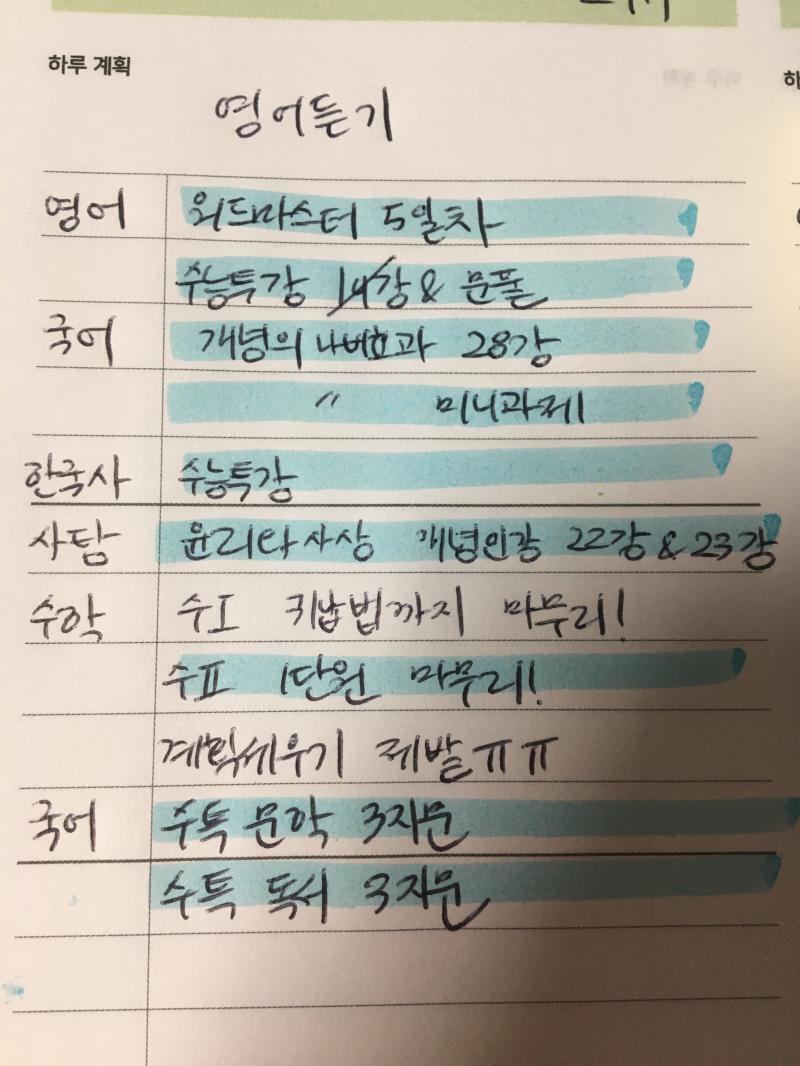 하루 계획
영어듣기
영어 워드마스터 5일차
수능특강 14강 & 문풀
국어 개념의 나비효과 28강
〃 미니과제
한국사 수능특강
사탐 윤리와사상 개념인강 22강 & 23강
수학 수Ⅰ 귀납법까지 마무리!
수Ⅱ 1단원 마무리!
계획세우기 제발ㅠㅠ
국어 수특 문학 3지문
수특 독서 3지문